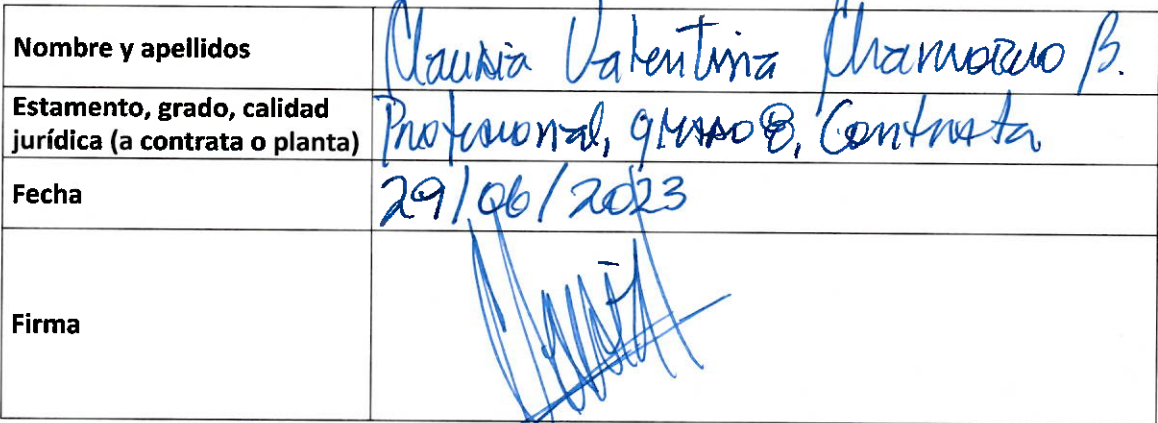 Nombre y apellidos
Claudia Valentina Chamorro B.
Estamento, grado, calidad
jurídica (a contrata o planta)
Profesional, grado 8, Contrata
Fecha
29/06/2023
Firma